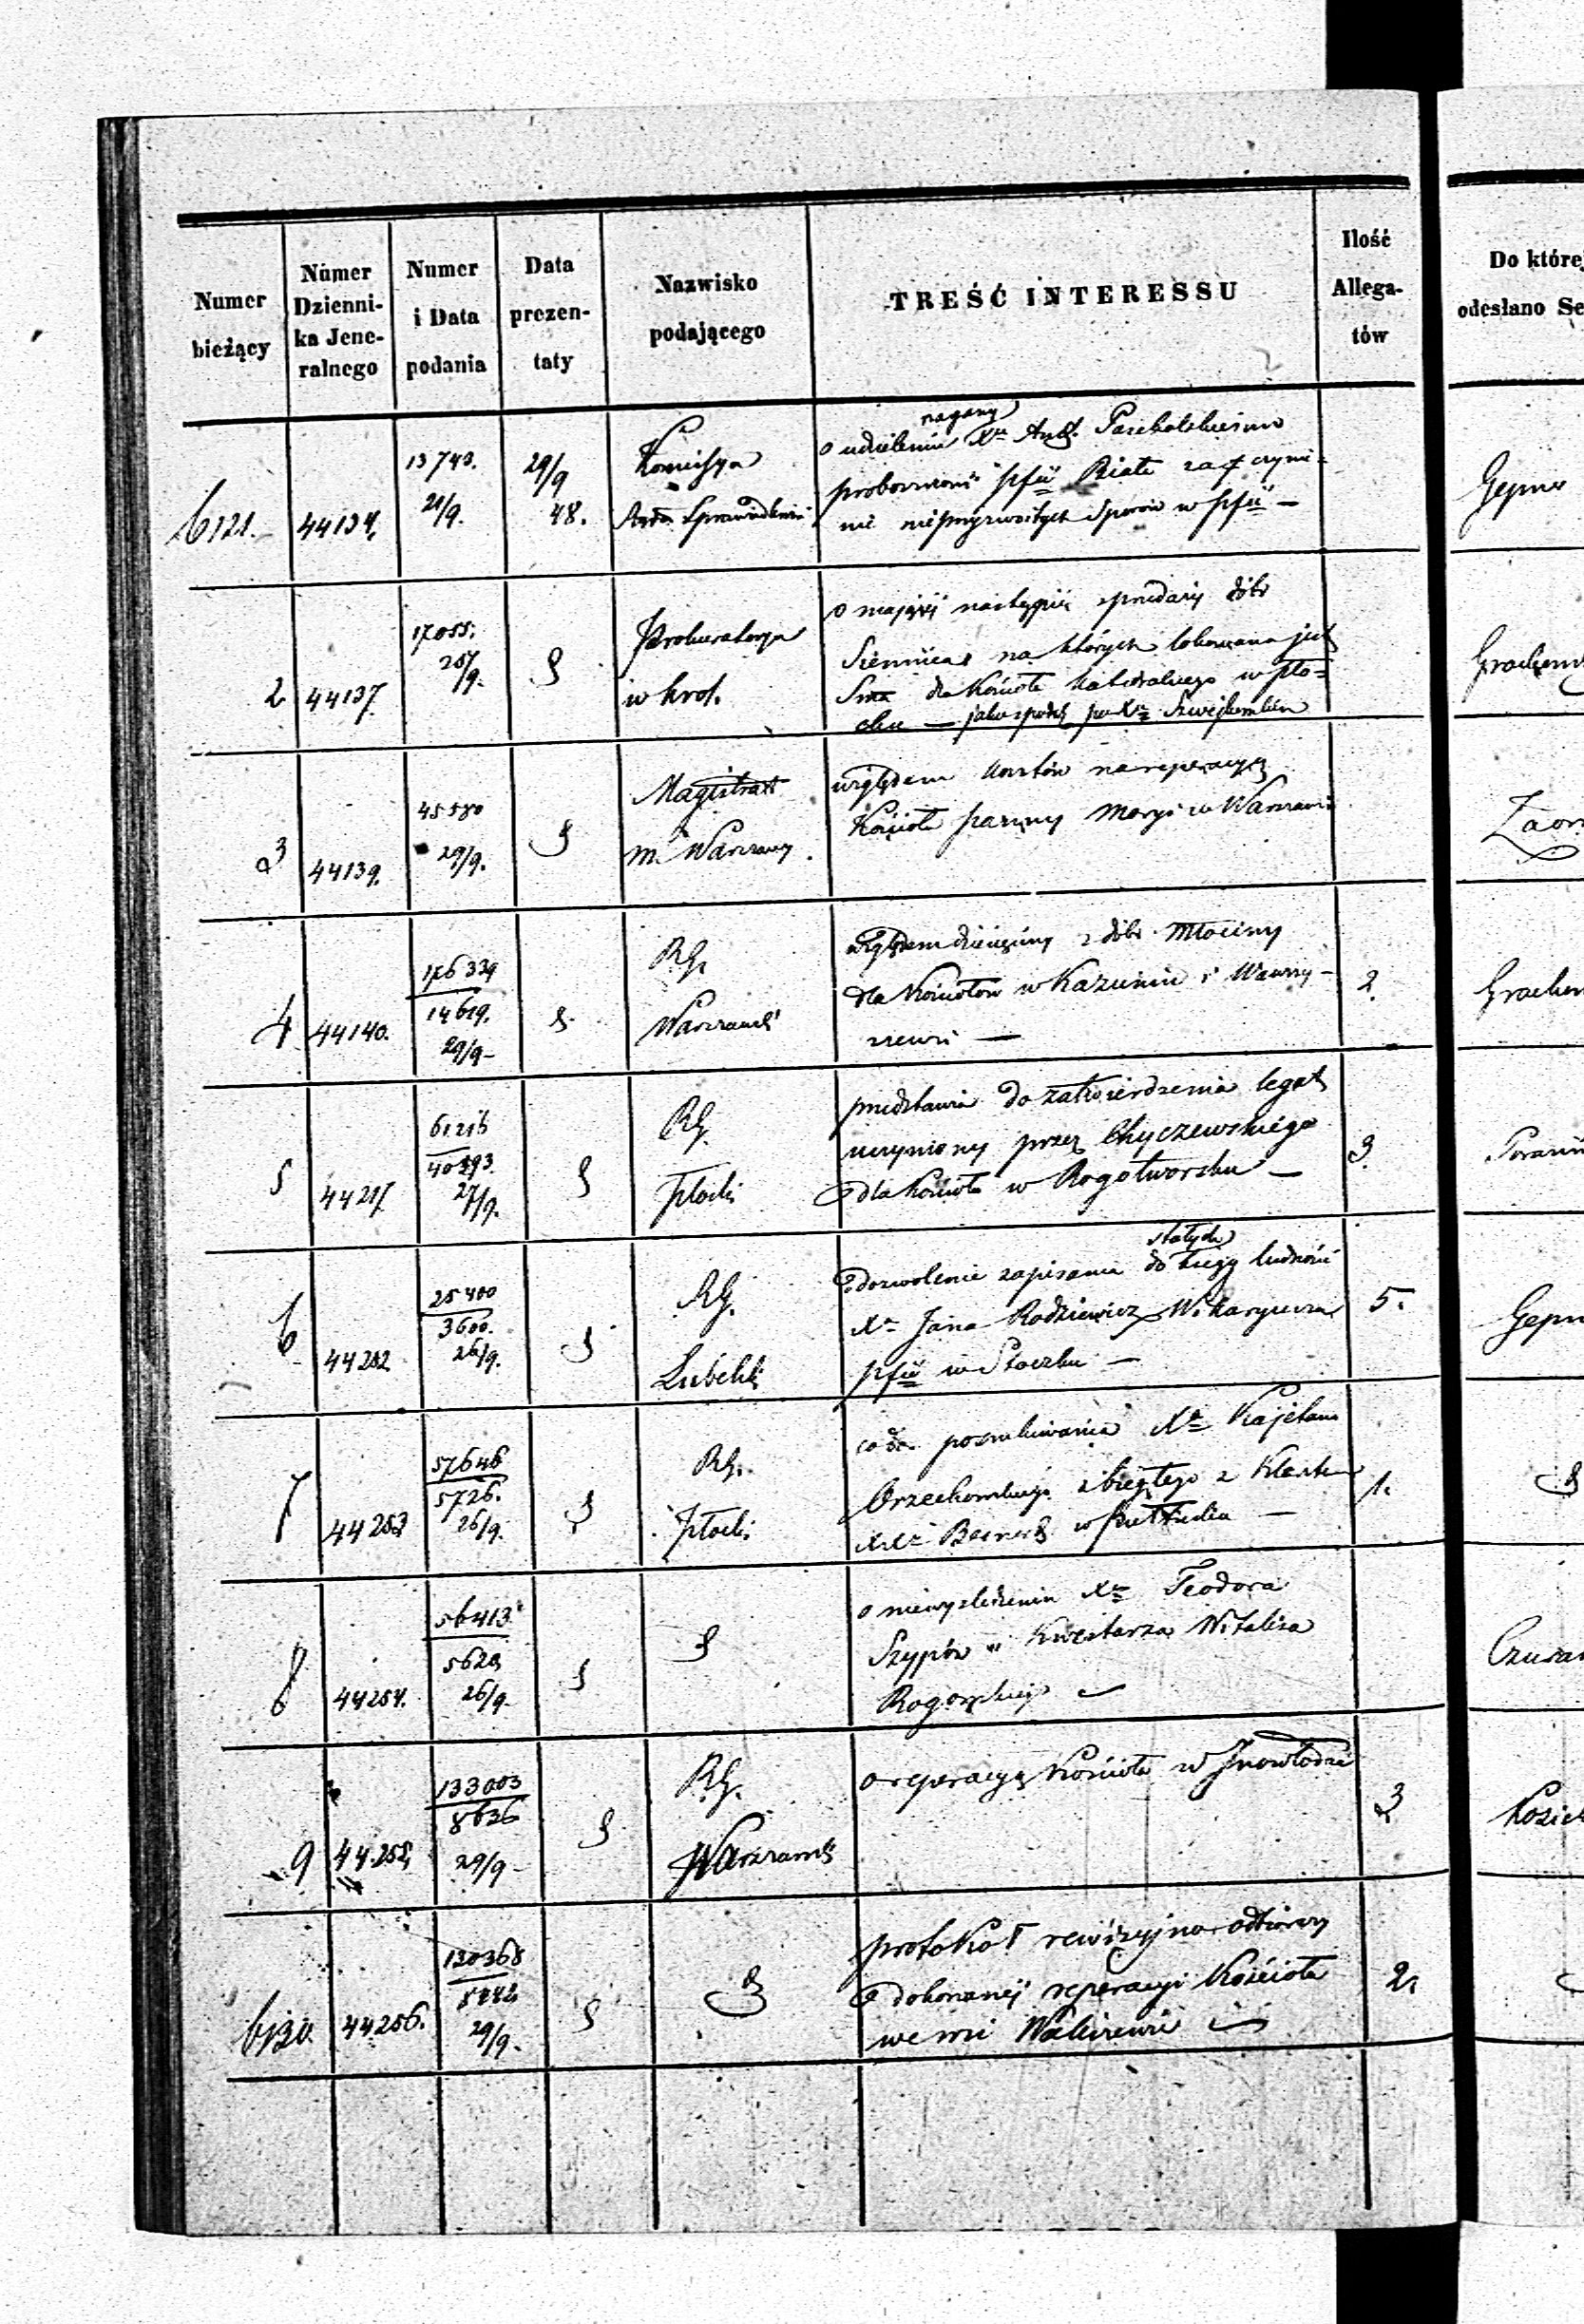 Numer bieżący
Numer Dzienni- ka Jene- ralnego
Numer i Data podania
Data prezen- taty
Nazwisko podającego
TREŚĆ INTERESSU
Ilość Allega- tów
Do której
odesłano Se
6121. 44134. 13743. 21/9. 29/9 48. Komissya Sprawiedliwości
nagany
o udzielenie Xu Ant.
proboszczowi pfii Biała za
nie nieprzyzwoitych sporów w pfii —
Gepne
2 44137. 17055. 25/9. Prokuratorya w Król.
o mającej nastąpić sprzedaży dóbr
Siennica na których lokowana jest
Sma dla Kościoła katedralnego w Pło-
cku —
3 44139. 45580 29/9. Magistrat m. Warszawy
względem kosztów na reperacyą
Kościoła panny Maryi w Warszawie
4 44140. 176339 14619. 29/9 — RG. Warszawski 2.
względem dziesięciny z dóbr Młociny
dla Kościołów w Kazuniu i Wawrzy-
szewie —
5 44217. 61216 40393. 27/9. RG. Płocki 3.
przedstawia do zatwierdzenia legat
uczyniony przez Chyczewskiego
dla Kościoła w Rogotworsku —
6 44252 25400 3600. 26/9. RG. Lubelski 5.
stałych
o dozwolenie zapisania do księgi ludności
Xa Jana Rodziewicz Wikaryusza
pfii w Stoczku —
Gepn
7 44253 57646 5726. 26/9. RG. Płocki 1.
co do poszukiwania Xa Kajetana
Orzechowskiego zbiegłego z Klasztoru
XX Bernard. w Pułtusku —
8 44254. 56413. 562 26/9.
o niewyśledzeniu Xa Teodora
Szypów i Kwestarza Witalisa
Rogowskiego
9 44255 133003 8636 29/9 — RG. Warszawski 3
o reperacyą Kościoła w Inowłodzi
6130. 44256. 130368 29/9. 2.
protokół rewizyjno odbiorczy
o dokonanej reperacyi Kościoła
we wsi